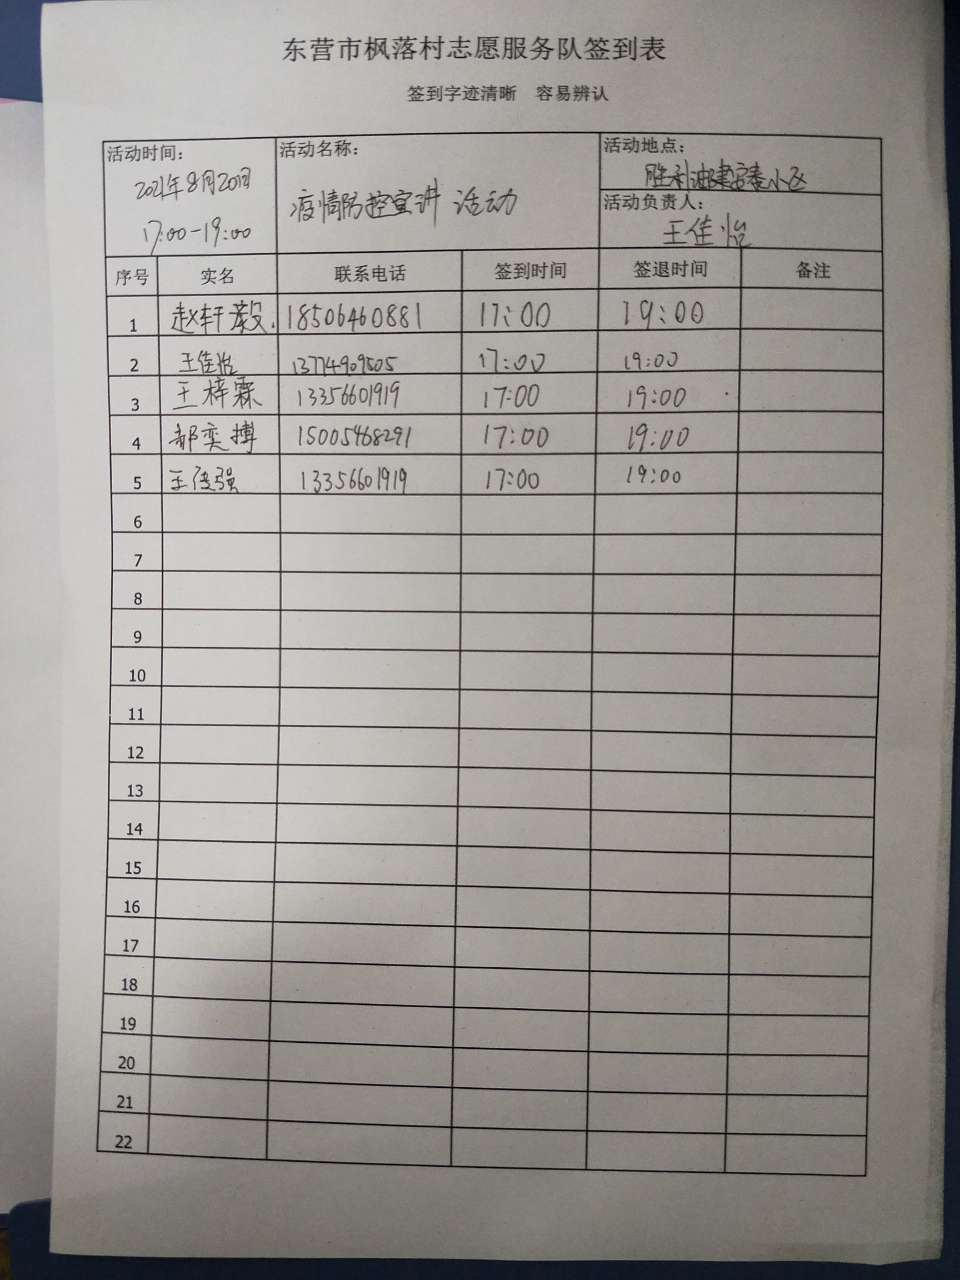 东营市枫落村志愿服务队签到表
签到字迹清晰 容易辨认
活动时间：
2021年8月20日
17:00-19:00
活动名称：
疫情防控宣讲 活动
活动地点：
胜利油建宿舍小区
活动负责人：
王佳怡
序号 实名 联系电话 签到时间 签退时间 备注
1 赵轩毅 18506460881 17:00 19:00
2 王佳怡 13774909505 17:00 19:00
3 王梓霖 13356601919 17:00 19:00
4 郝奕搏 15005468291 17:00 19:00
5 王俊强 13356601919 17:00 19:00
6
7
8
9
10
11
12
13
14
15
16
17
18
19
20
21
22